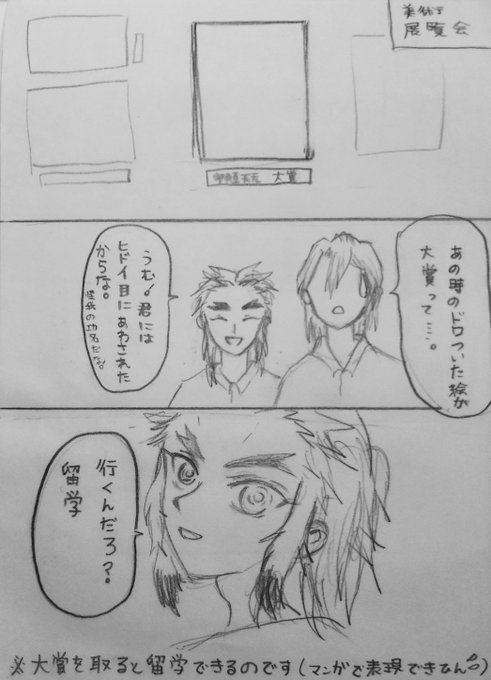 美術
展覧会
宇髄天元 大賞
あの時のドロついた絵が
大賞って…。
うむ!君には
ヒドイ目にあわされた
からな。
怪我の功名だな。
行くんだろ?
留学
※大賞を取ると留学できるのです(マンガで表現できひん